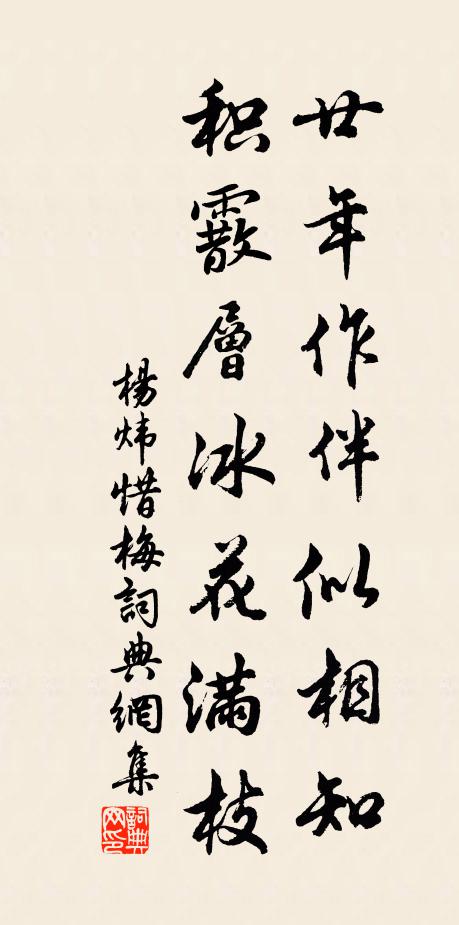 廿年作伴似相知
积霰層冰花满枝
楊炜惜梅詞典網集
詞典网印